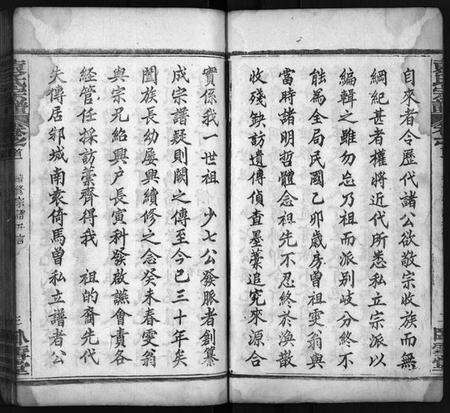 自來者令歷代諸公欲敬宗收族而無
綱紀甚者權將近代所悉私立宗派以
編輯之雖勿忘乃祖而派別歧分終不
能為全局民國乙卯歲房曾祖雯翁與
當時諸明哲體念祖先不忍終於渙散
收殘缺訪遺傳偵查墨藁追究來源合
實係我一世祖 少七公發脈者創纂
成宗譜疑則闕之傳至今已三十年矣
闔族長幼屢興續修之念癸未春雯翁
與宗兄紹興户長寅科發啟讌會責各
經管任採訪藁齊得我 祖的裔先代
失傳居鄂城南袁倚馬曾私立譜者公